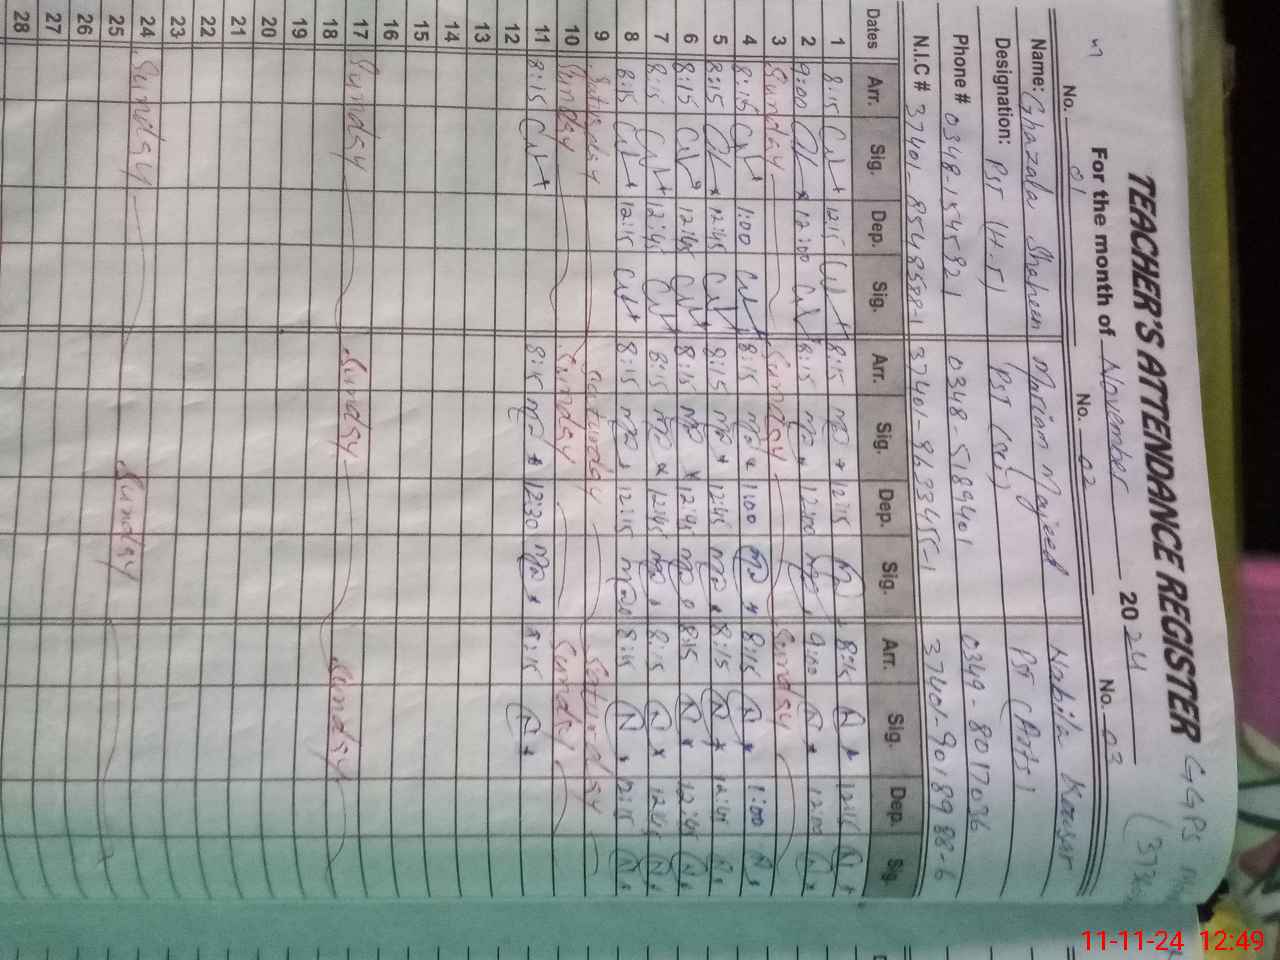 TEACHER'S ATTENDANCE REGISTER GGPS
For the month of November 2024
No. 01 No. 02 No. 03
Name: Ghazala Shaheen Mariam Majeed Nabila Kousar
Designation: PST (H.T) PST (Sci) PST (Arts)
Phone # 0348-1545821 0348-5189401 0349-8017036
N.I.C # 37401-8548588-1 37401-8633455-1 37401-9018988-6
Dates Arr. Sig. Dep. Sig. Arr. Sig. Dep. Sig. Arr. Sig. Dep. Sig.
1 8:15 12:15 8:15 12:15 8:15 12:15
2 9:00 12:00 8:15 12:00 9:00 12:00
3 Sunday Sunday Sunday
4 8:15 1:00 8:15 1:00 8:15 1:00
5 8:15 12:45 8:15 12:45 8:15 12:45
6 8:15 12:45 8:15 12:45 8:15 12:45
7 8:15 12:45 8:15 12:45 8:15 12:45
8 8:15 12:15 8:15 12:15 8:15 12:15
9 Saturday Saturday Saturday
10 Sunday Sunday Sunday
11 8:15 8:15 12:30 8:15
12
13
14
15
16
17 Sunday Sunday Sunday
18
19
20
21
22
23
24 Sunday Sunday
25
26
27
28
11-11-24 12:49